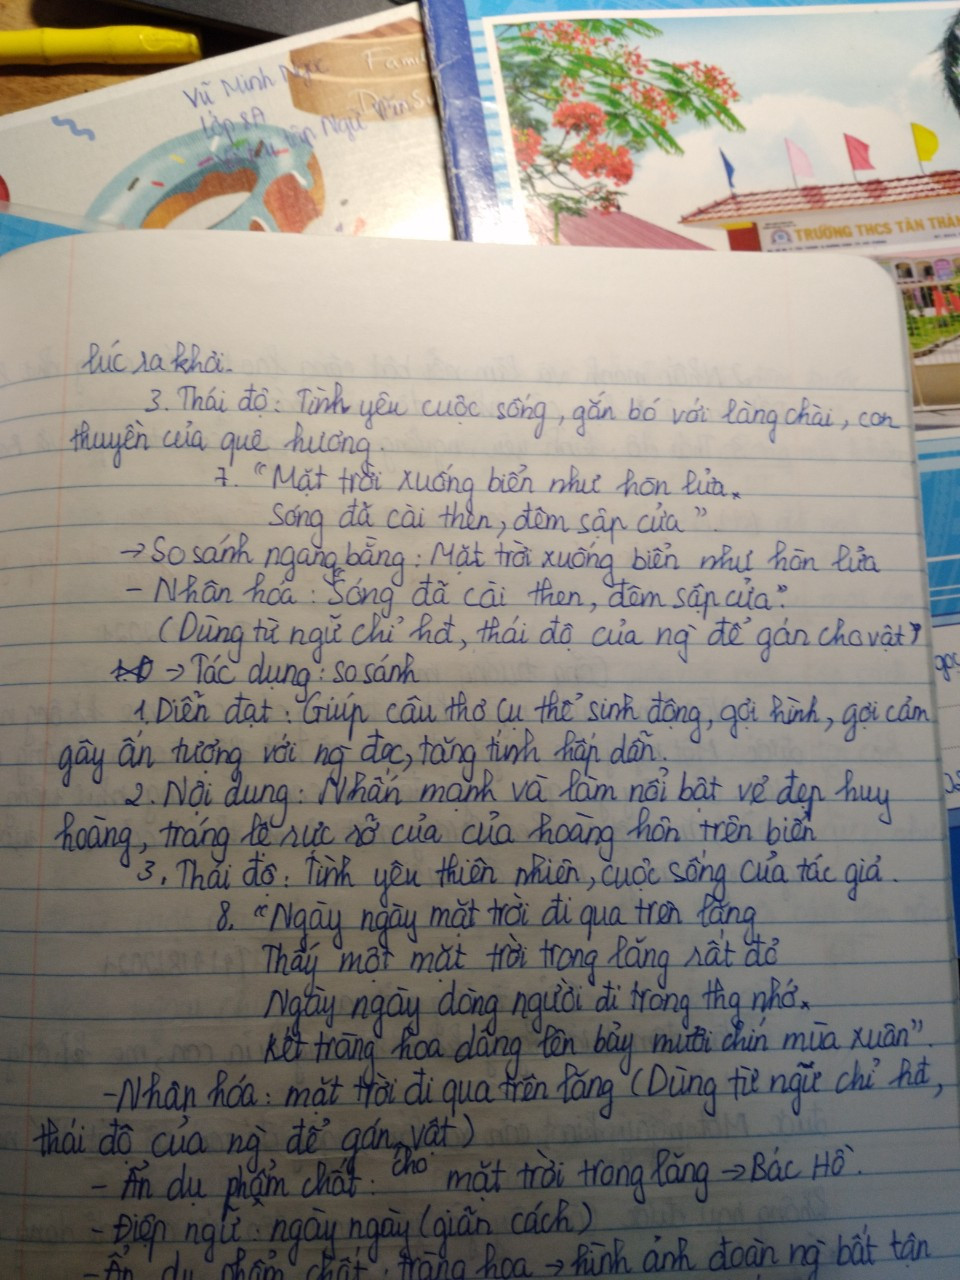 Family
Vũ Minh Ngọc
Lớp 8A
Ngữ Văn
TRƯỜNG THCS TÂN THÀN
lúc ra khơi.
3. Thái độ: Tình yêu cuộc sống, gắn bó với làng chài, con
thuyền của quê hương.
7. "Mặt trời xuống biển như hòn lửa
Sóng đã cài then, đêm sập cửa".
→ So sánh ngang bằng: Mặt trời xuống biển như hòn lửa
- Nhân hóa: "Sóng đã cài then, đêm sập cửa".
(Dùng từ ngữ chỉ hđ, thái độ của ng` để gán cho vật)
→ Tác dụng: so sánh
1. Diễn đạt: Giúp câu thơ cụ thể sinh động, gợi hình, gợi cảm
gây ấn tượng với ng` đọc, tăng tính hấp dẫn.
2. Nội dung: Nhấn mạnh và làm nổi bật vẻ đẹp huy
hoàng, tráng lệ rực rỡ của của hoàng hôn trên biển
3. Thái độ: Tình yêu thiên nhiên, cuộc sống của tác giả.
8. "Ngày ngày mặt trời đi qua trên lăng
Thấy một mặt trời trong lăng rất đỏ
Ngày ngày dòng người đi trong thg nhớ
Kết tràng hoa dâng lên bảy mươi chín mùa xuân".
- Nhân hóa: mặt trời đi qua trên lăng (Dùng từ ngữ chỉ hđ,
thái độ của ng` để gán cho vật)
- Ẩn dụ phẩm chất: mặt trời trong lăng → Bác Hồ.
- Điệp ngữ: ngày ngày (giãn cách)
- Ẩn dụ phẩm chất: tràng hoa → hình ảnh đoàn ng` bất tận